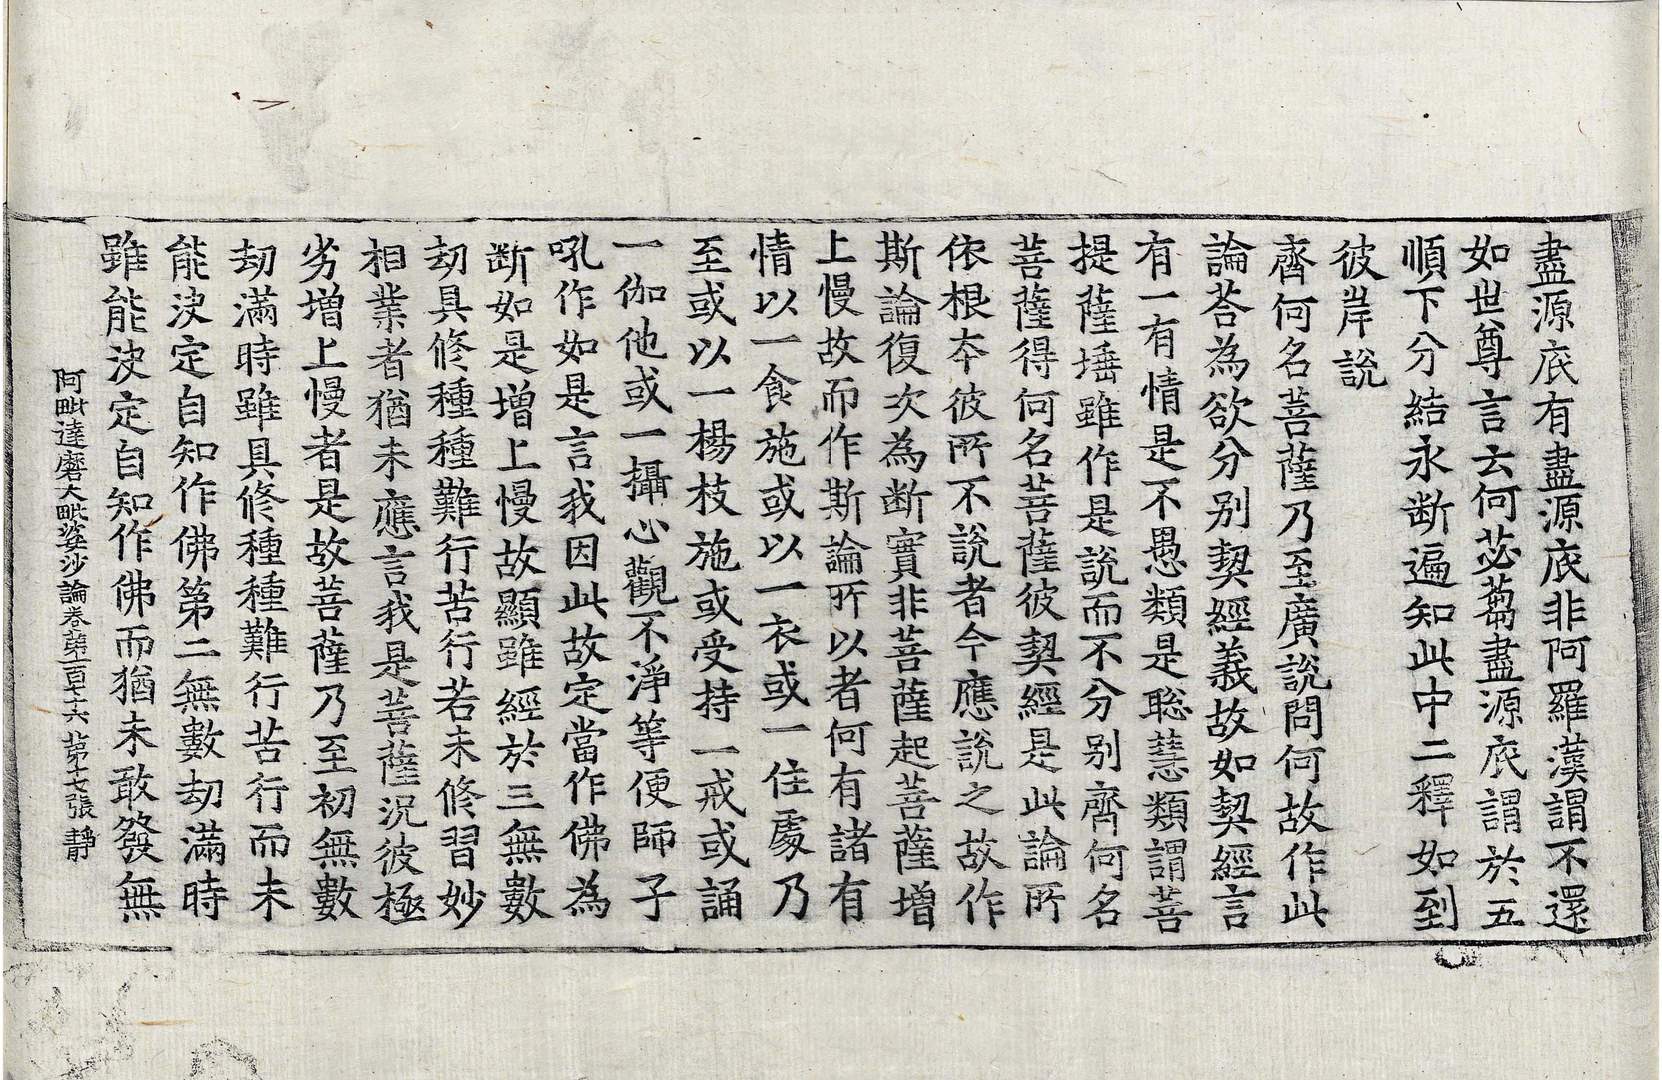 盡源底有盡源底非阿羅漢謂不還
如世尊言云何苾蒭盡源底謂於五
順下分結永断遍知此中二釋如到
彼岸說
齊何名菩薩乃至廣說問何故作此
論荅為欲分别契經義故如契經言
有一有情是不愚類是聡慧類謂菩
提薩埵雖作是說而不分别齊何名
菩薩得何名菩薩彼契經是此論所
依根夲彼所不說者今應說之故作
斯論復次為断實非菩薩起菩薩增
上慢故而作斯論所以者何有諸有
情以一食施或以一衣或一住處乃
至或以一楊枝施或受持一戒或誦
一伽他或一攝心觀不淨等便師子
吼作如是言我因此故定當作佛為
断如是增上慢故顯雖經於三無數
劫具修種種難行苦行若未修習妙
相業者猶未應言我是菩薩況彼極
劣增上慢者是故菩薩乃至初無數
劫滿時雖具修種種難行苦行而未
能決定自知作佛第二無數劫滿時
雖能決定自知作佛而猶未敢發無
阿毗達磨大毗婆沙論卷第一百七十六 第十七張 靜